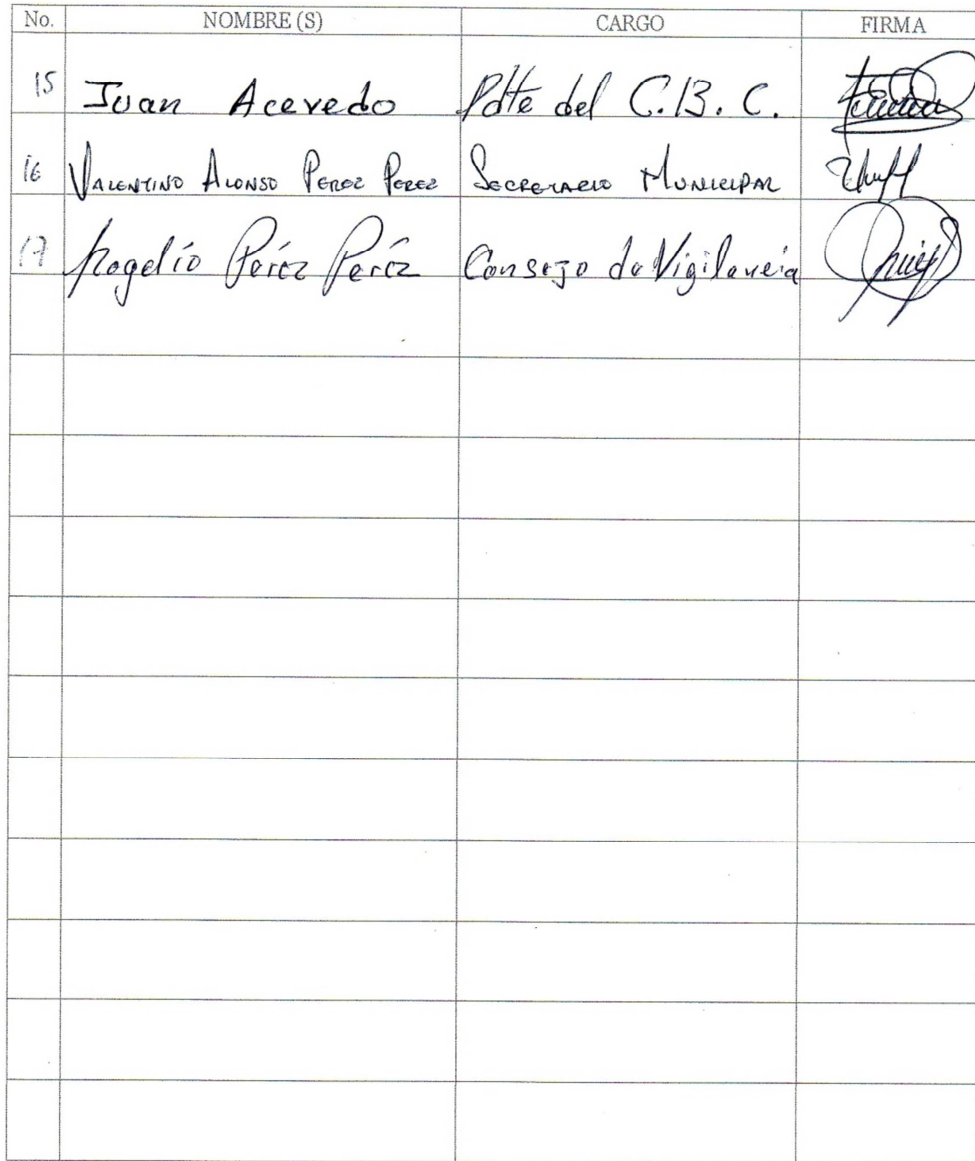 No. NOMBRE (S) CARGO FIRMA
15 Juan Acevedo Pdte del C.B.C.
16 VALENTINO ALONSO PEREZ PEREZ SECRETARIO MUNICIPAL
17 Rogelio Peréz Peréz Consejo de Vigilancia